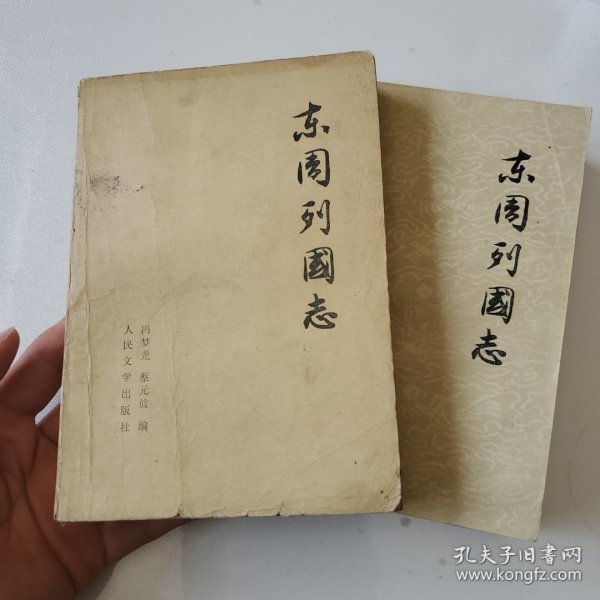 东周列國志
冯梦龙 蔡元放 编
人民文学出版社
东周列國志
孔夫子旧书网
www.kongfz.com